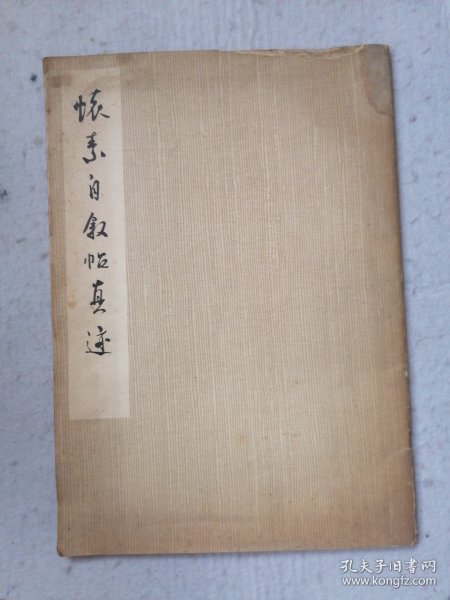 懐素自叙帖真迹
孔夫子旧书网
www.kongfz.com